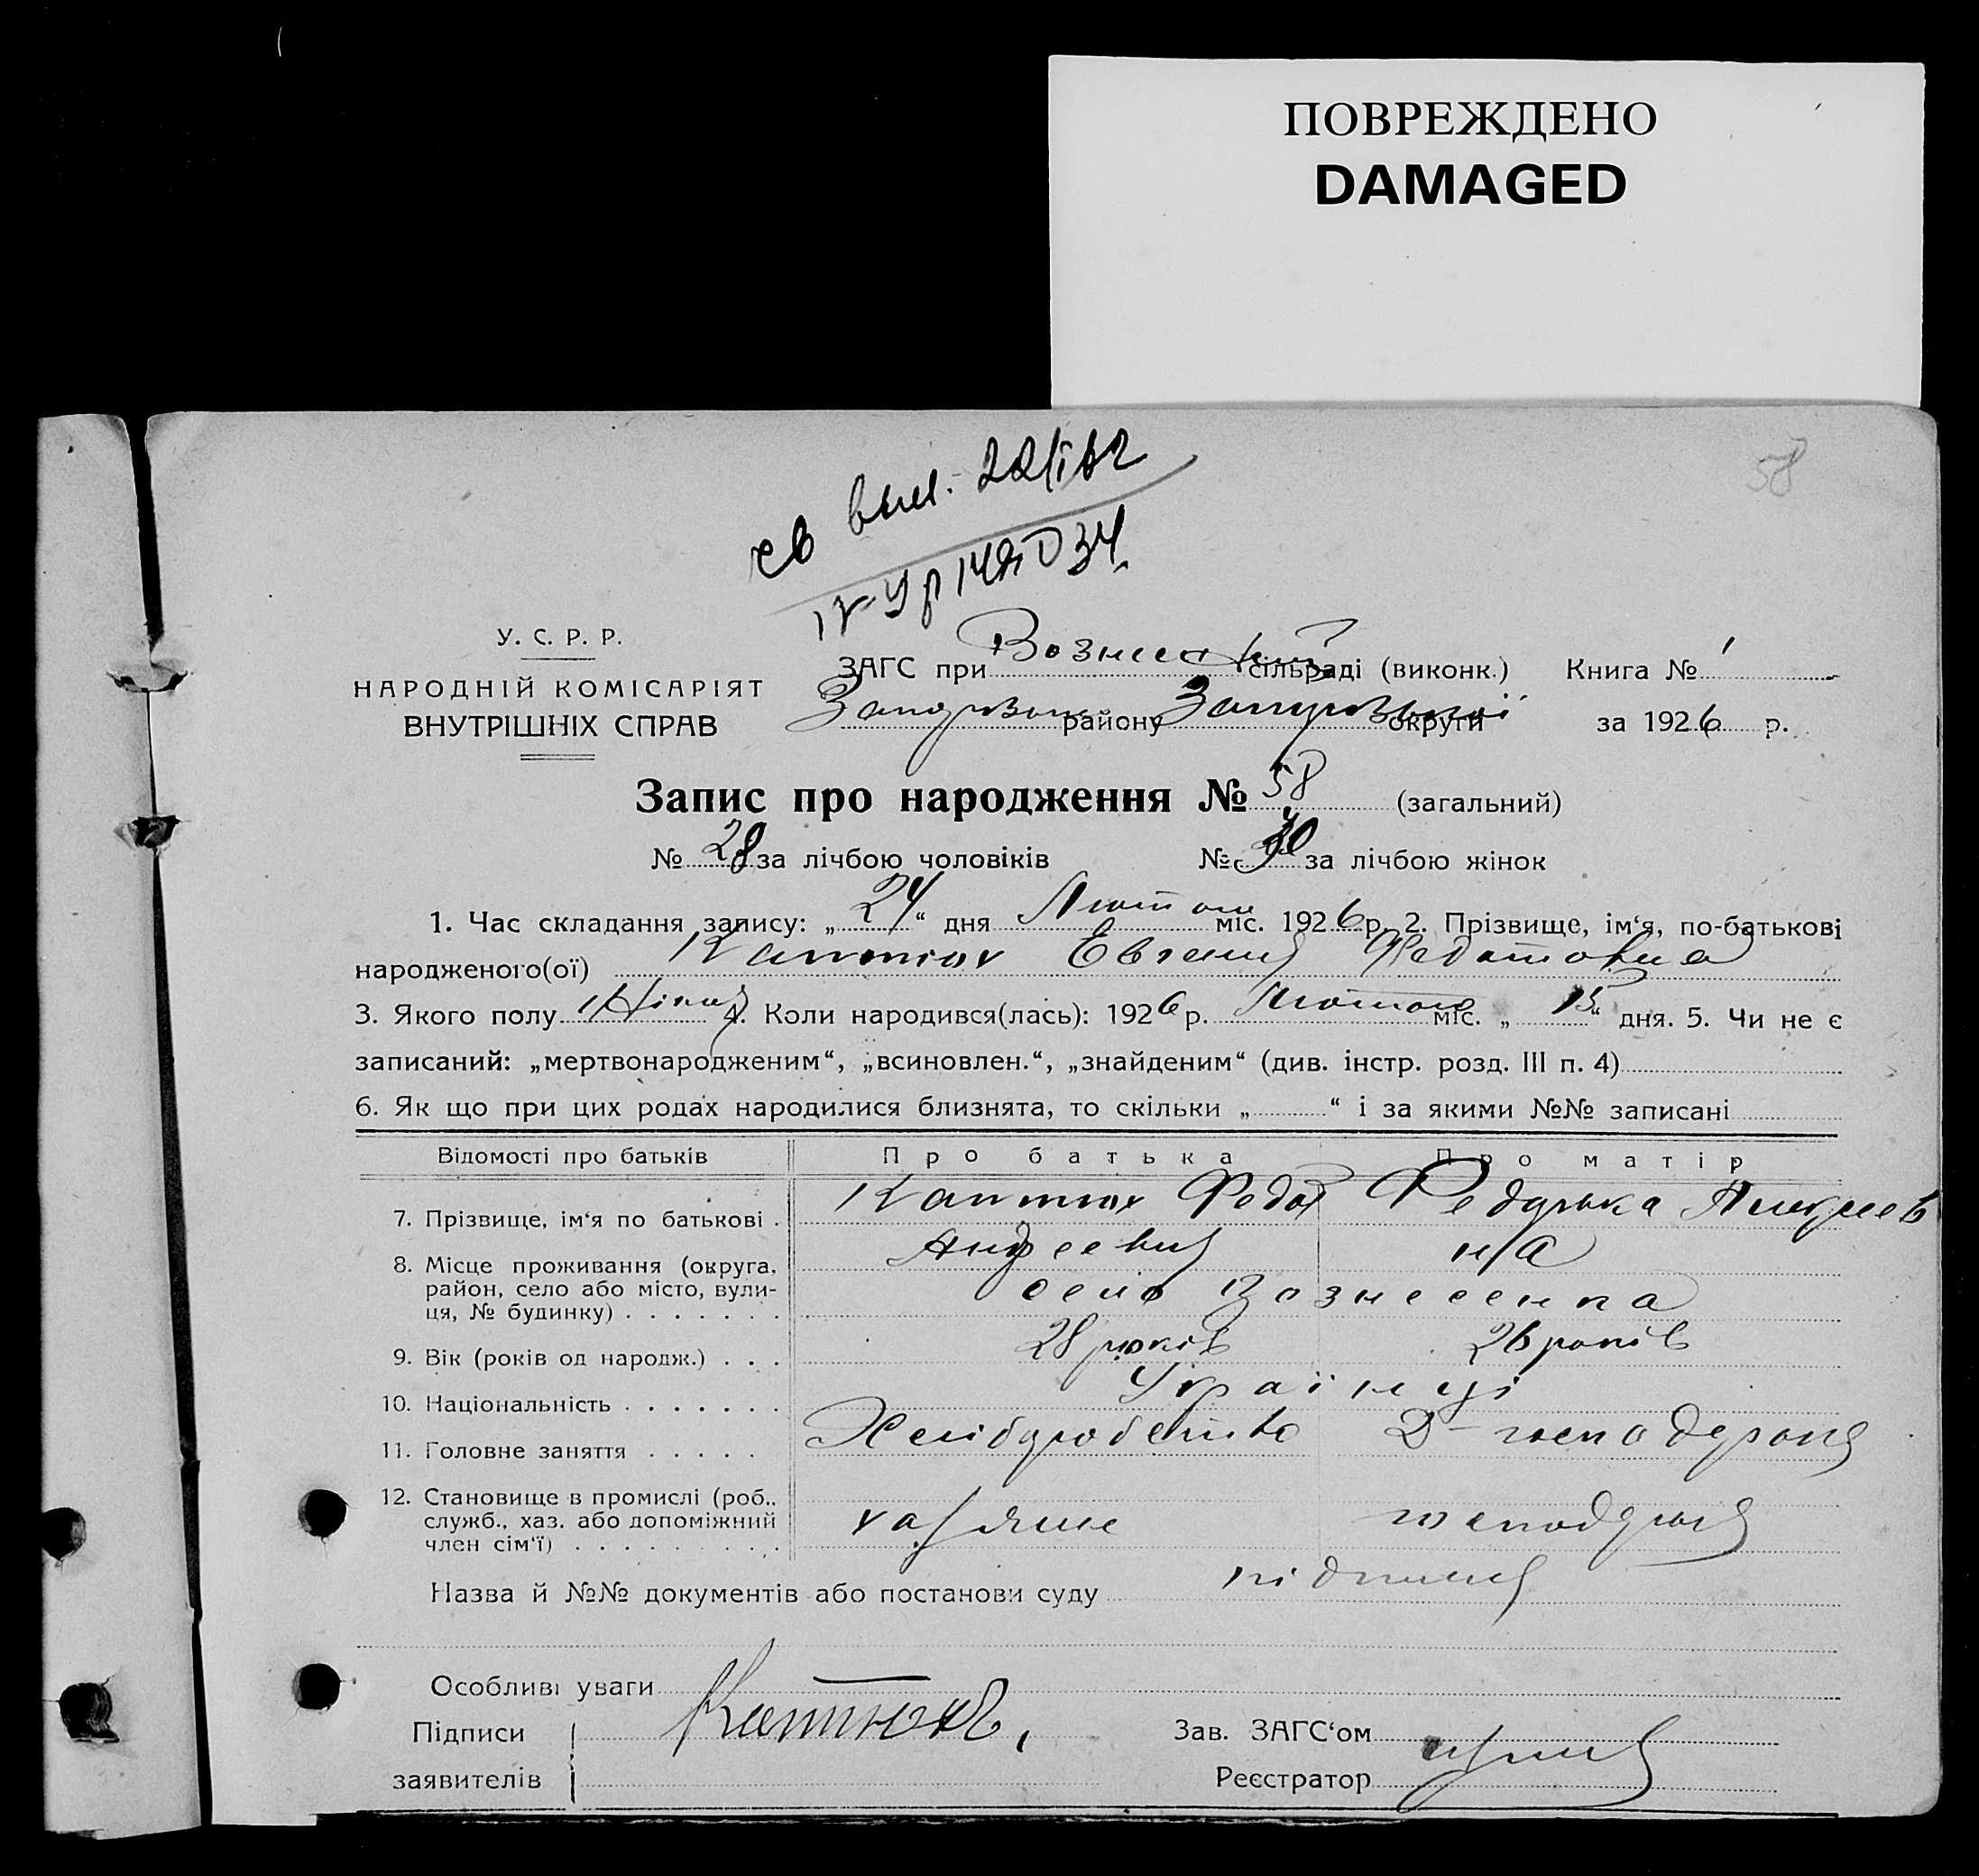 ПОВРЕЖДЕНО
DAMAGED
58
св выд. 22/I 62
У. С. Р. Р.
НАРОДНІЙ КОМІСАРІЯТ
ВНУТРІШНІХ СПРАВ
ЗАГС при сільраді (виконк.) Книга № 1
району округи за 1926 р.
Запис про народження № 58 (загальний)
№ 28 за лічбою чоловіків № 30 за лічбою жінок
1. Час складання запису: „24“ дня Лютого міс. 1926 р. 2. Прізвище, ім‘я, по-батькові
народженого(ої) Каптюх Евгения Федотовна
3. Якого полу Жіноч. 4. Коли народився(лась): 1926 р. Лютого міс. „15“ дня. 5. Чи не є
записаний: „мертвонародженим“, „всиновлен.“, „знайденим“ (див. інстр. розд. III п. 4)
6. Як що при цих родах народилися близнята, то скільки „ “ і за якими №№ записані
Відомості про батьків Про батька Про матір
7. Прізвище, ім‘я по батькові . Каптюх Федот
Андреевич
8. Місце проживання (округа, район, село або місто, вулиця, № будинку) . . . . . . . село Вознесенка
9. Вік (років од народж.) . . . 28 років 26 років
10. Національність . . . . . . . Українці
11. Головне заняття . . . . . Хліборобство
12. Становище в промислі (роб., служб., хаз. або допоміжний член сім‘ї) . . . . . . . . .
Назва й №№ документів або постанови суду
Особливі уваги
Підписи Зав. ЗАГС‘ом
заявителів Реєстратор